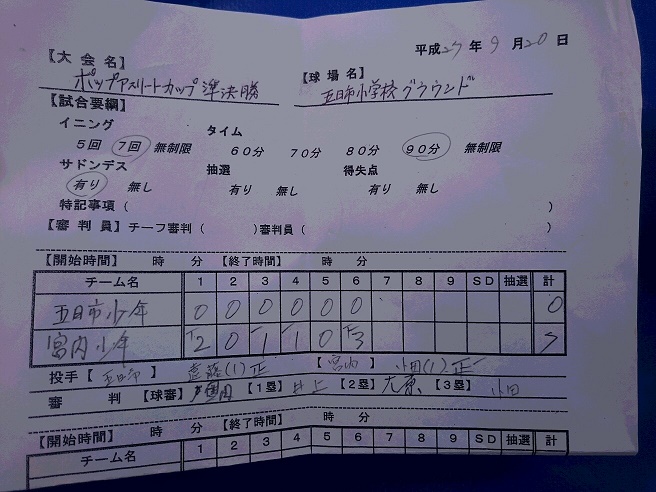 平成27年9月20日
【大会名】
ポップアスリートカップ準決勝
【球場名】
五日市小学校グラウンド
【試合要綱】
イニング タイム
5回 7回 無制限 60分 70分 80分 90分 無制限
サドンデス 抽選 得失点
有り 無し 有り 無し 有り 無し
特記事項( )
【審判員】チーフ審判( )審判員( )
【開始時間】 時 分 【終了時間】 時 分
チーム名 1 2 3 4 5 6 7 8 9 SD 抽選 計
五日市少年 0 0 0 0 0 0 0
宮内少年 2 0 1 1 0 3
投手【五日市】 (1)正 【宮内】 小田(1)正
審 判 【球審】 【1塁】井上 【2塁】 【3塁】小田
【開始時間】 時 分 【終了時間】 時 分
チーム名 1 2 3 4 5 6 7 8 9 SD 抽選 計